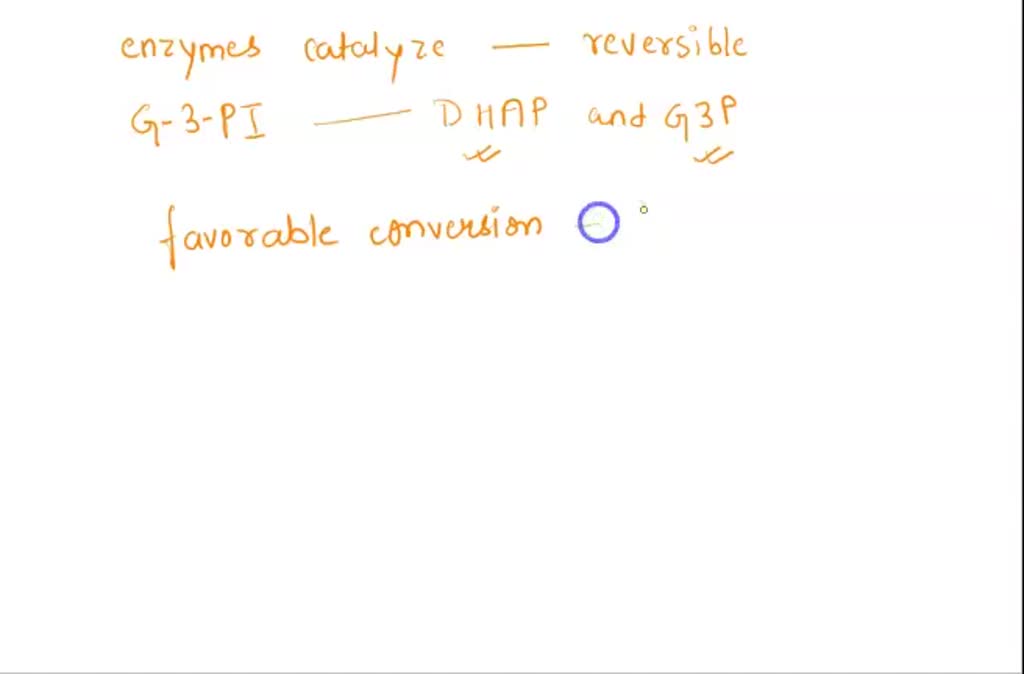 enzymes catalyze — reversible
G-3-PI — DHAP and G3P
favorable conversion